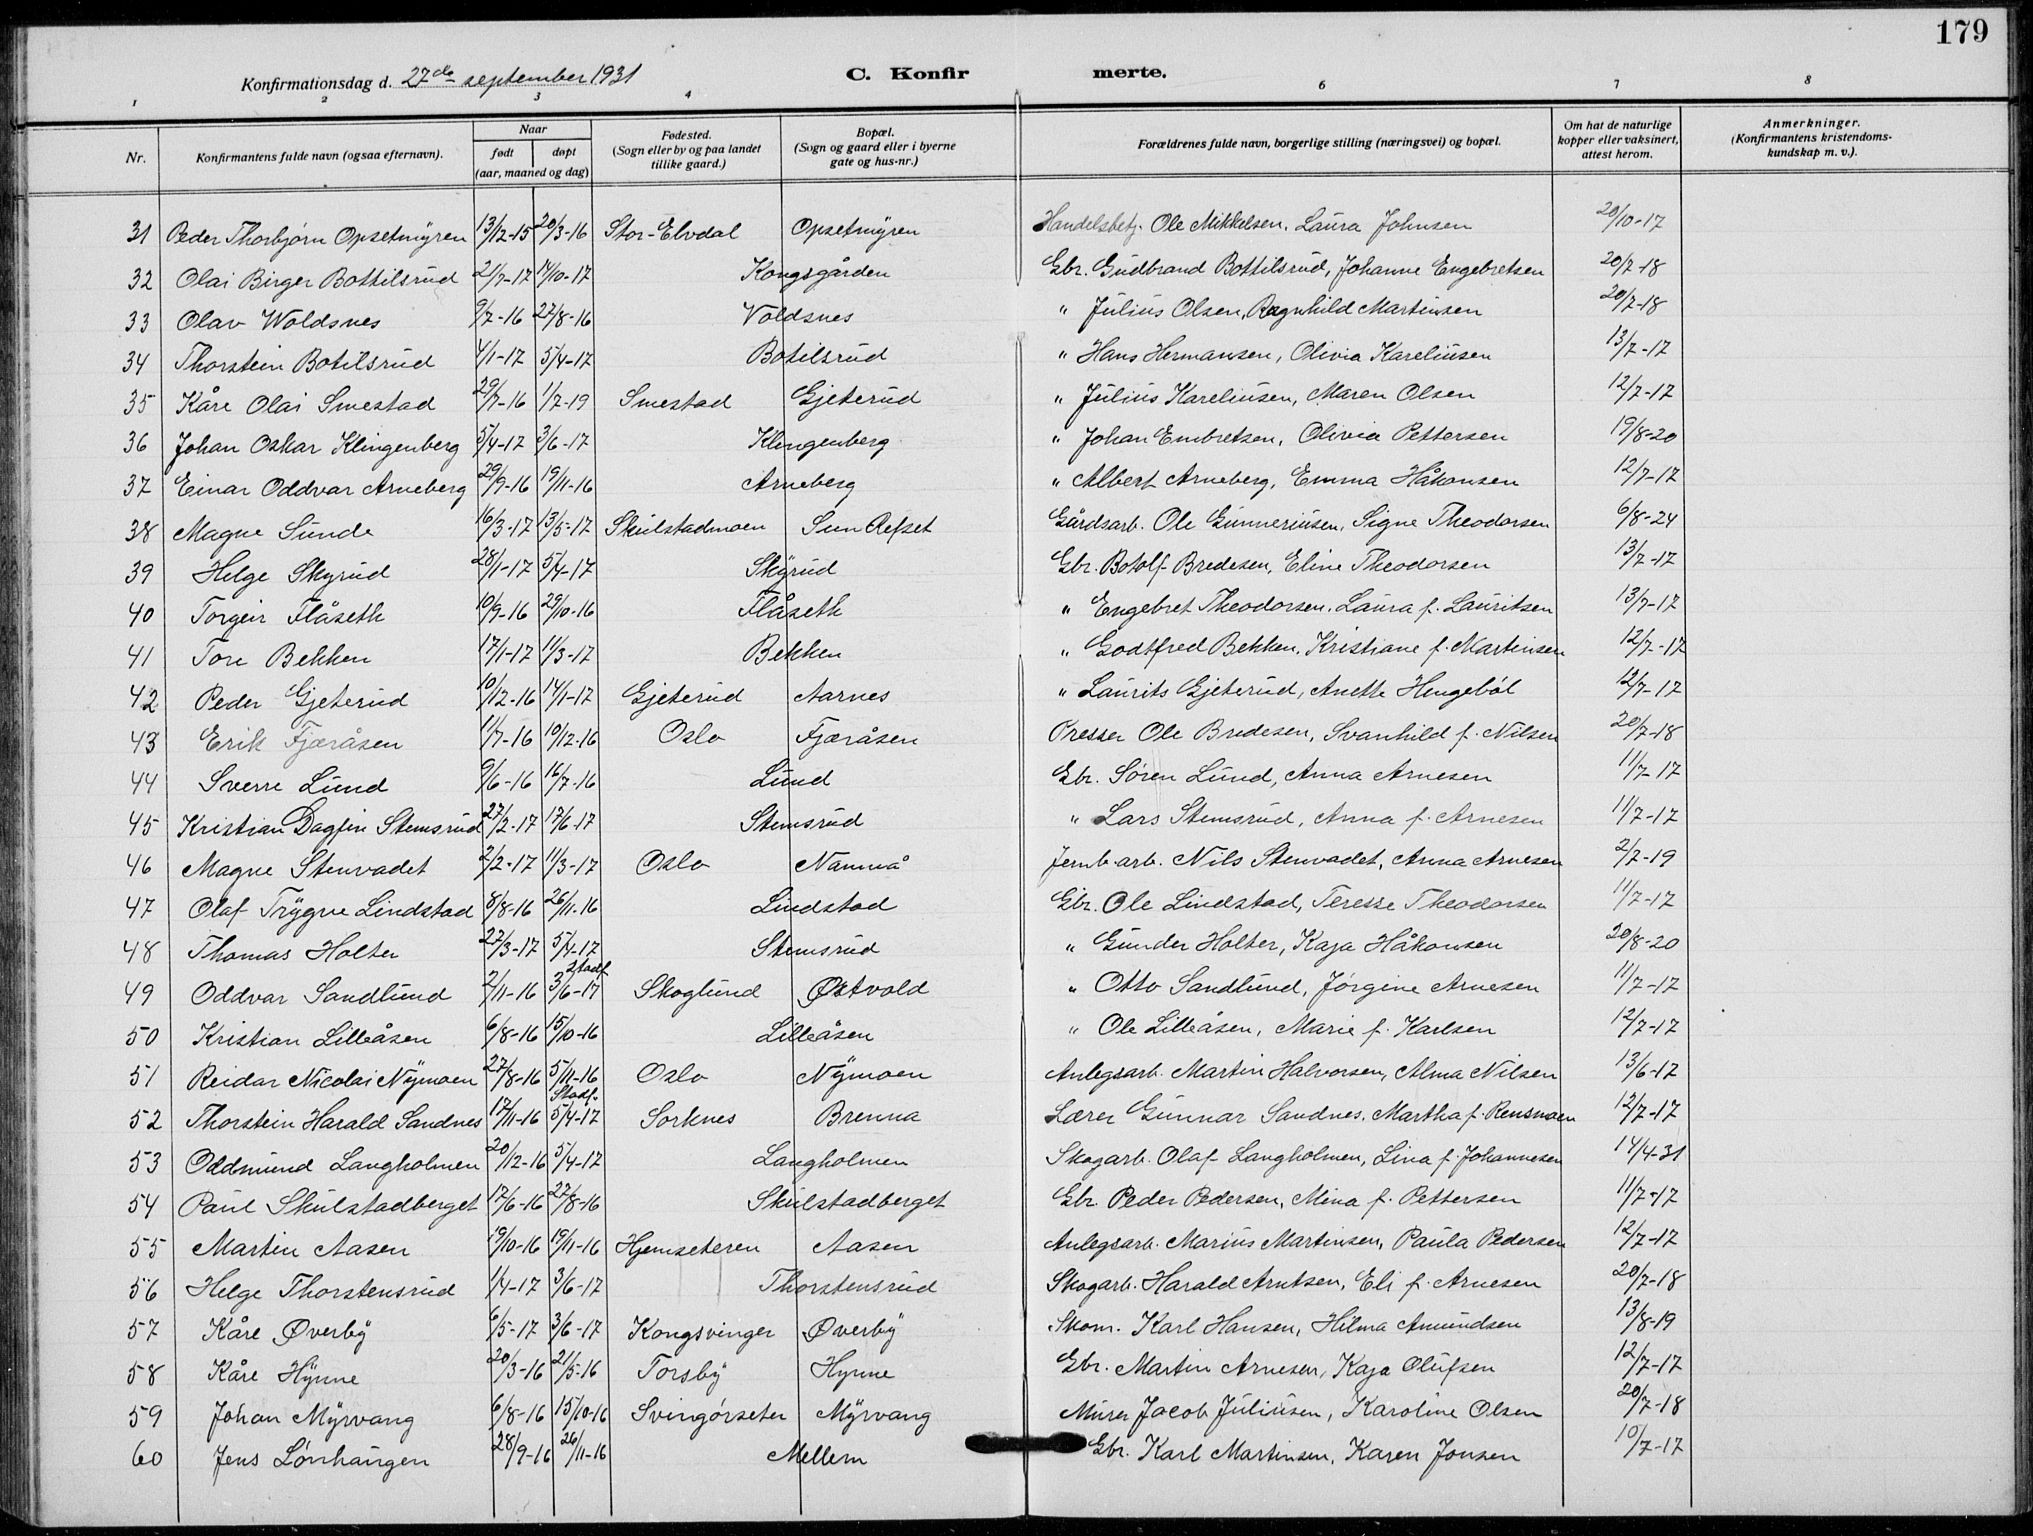 179
Konfirmationsdag d. 27de september 1931 C. Konfirmerte.
1 2 3 4 6 7 8
Nr. Konfirmantens fulde navn (ogsaa efternavn). Naar født døpt (aar, maaned og dag) Fødested. (Sogn eller by og paa landet tillike gaard.) Bopæl. (Sogn og gaard eller i byerne gate og hus-nr.) Forældrenes fulde navn, borgerlige stilling (næringsvei) og bopæl. Om hat de naturlige kopper eller vaksinert, attest herom. Anmerkninger. (Konfirmantens kristendoms-kundskap m. v.).
31 Peder Thorbjørn Opsetmyren 13/12-15 20/3-16 Stor-Elvdal Opsetmyren Handelsbetj. Ole Mikkelsen, Laura Johnsen 20/10-17
32 Olai Birger Bottilsrud 21/7-17 14/10-17 Kongsgården Gbr. Gudbrand Bottilsrud, Johanne Engebretsen 20/7-18
33 Olav Woldsnes 9/7-16 27/8-16 Voldsnes " Julius Olsen, Ragnhild Martinsen 20/7-18
34 Thorstein Botilsrud 4/1-17 5/4-17 Botilsrud " Hans Hermansen, Olivia Kareliusen 13/7-17
35 Kåre Olai Smestad 29/7-16 1/7-19 Smestad Gjeterud " Julius Kareliusen, Maren Olsen 12/7-17
36 Johan Oskar Klingenberg 5/4-17 3/6-17 Klingenberg " Johan Embretsen, Olivia Pettersen 19/8-20
37 Einar Oddvar Arneberg 29/9-16 19/11-16 Arneberg " Albert Arneberg, Emma Håkonsen 12/7-17
38 Magne Sunde 16/3-17 13/5-17 Skulstadmoen Sun Refset Gårdsarb. Ole Gunneriusen, Signe Theodorsen 6/8-24
39 Helge Skyrud 28/1-17 5/4-17 Skyrud Gbr. Botolf Bredesen, Eline Theodorsen 13/7-17
40 Torgeir Flåseth 10/9-16 29/10-16 Flåseth " Engebret Theodorsen, Laura f. Lauritsen 13/7-17
41 Tore Bekken 17/1-17 11/3-17 Bekken " Godtfred Bekken, Kristiane f. Martinsen 12/7-17
42 Peder Gjeterud 10/12-16 14/1-17 Gjeterud Aarnes " Laurits Gjeterud, Anette Hengebøl 12/7-17
43 Erik Fjæråsen 11/7-16 10/12-16 Oslo Fjæråsen Presser Ole Bredesen, Svanhild f. Nilsen 20/7-18
44 Sverre Lund 9/6-16 16/7-16 Lund Gbr. Søren Lund, Anna Arnesen 11/7-17
45 Kristian Dagfin Stemsrud 27/2-17 17/6-17 Stemsrud " Lars Stemsrud, Anna f. Arnesen 11/7-17
46 Magne Stenvadet 2/2-17 11/3-17 Oslo Namnå Jernb.arb. Nils Stenvadet, Anna Arnesen 2/7-19
47 Olaf Trygve Lindstad 8/8-16 26/11-16 Lindstad Gbr. Ole Lindstad, Teresse Theodorsen 11/7-17
48 Thomas Holter 27/3-17 5/4-17 Stemsrud " Gunder Holter, Kaja Håkonsen 20/8-20
49 Oddvar Sandlund 2/11-16 Stadf. 3/6-17 Skoglund Østvold " Otto Sandlund, Jørgine Arnesen 11/7-17
50 Kristian Lilleåsen 6/8-16 15/10-16 Lilleåsen " Ole Lilleåsen, Marie f. Karlsen 12/7-17
51 Reidar Nicolai Nymoen 27/8-16 5/11-16 Oslo Nymoen Anlegsarb. Martin Halvorsen, Alma Nilsen 13/6-17
52 Thorstein Harald Sandnes 17/11-16 Stadf. 5/4-17 Sorknes Brenna Lærer Gunnar Sandnes, Martha f. Rensmoen 12/7-17
53 Oddmund Langholmen 20/12-16 5/4-17 Langholmen Skogarb. Olaf Langholmen, Lina f. Johannesen 14/4-31
54 Paul Skulstadberget 17/6-16 27/8-16 Skulstadberget Gbr. Peder Pedersen, Mina f. Pettersen 11/7-17
55 Martin Aasen 19/10-16 19/11-16 Hjemseteren Aasen Anlegsarb. Marius Martinsen, Paula Pedersen 12/7-17
56 Helge Thorstensrud 1/4-17 3/6-17 Thorstensrud Skogarb. Harald Arntsen, Eli f. Arnesen 20/7-18
57 Kåre Øverby 6/5-17 3/6-17 Kongsvinger Øverby Skom. Karl Hansen, Hilma Amundsen 13/8-19
58 Kåre Hynne 20/3-16 21/5-16 Torsby Hynne Gbr. Martin Arnesen, Kaja Olufsen 12/7-17
59 Johan Myrvang 6/8-16 15/10-16 Svingørseter Myrvang Murer Jacob Juliusen, Karoline Olsen 20/7-18
60 Jens Lønhaugen 28/9-16 26/11-16 Mellem Gbr. Karl Martinsen, Karen Jonsen 10/7-17